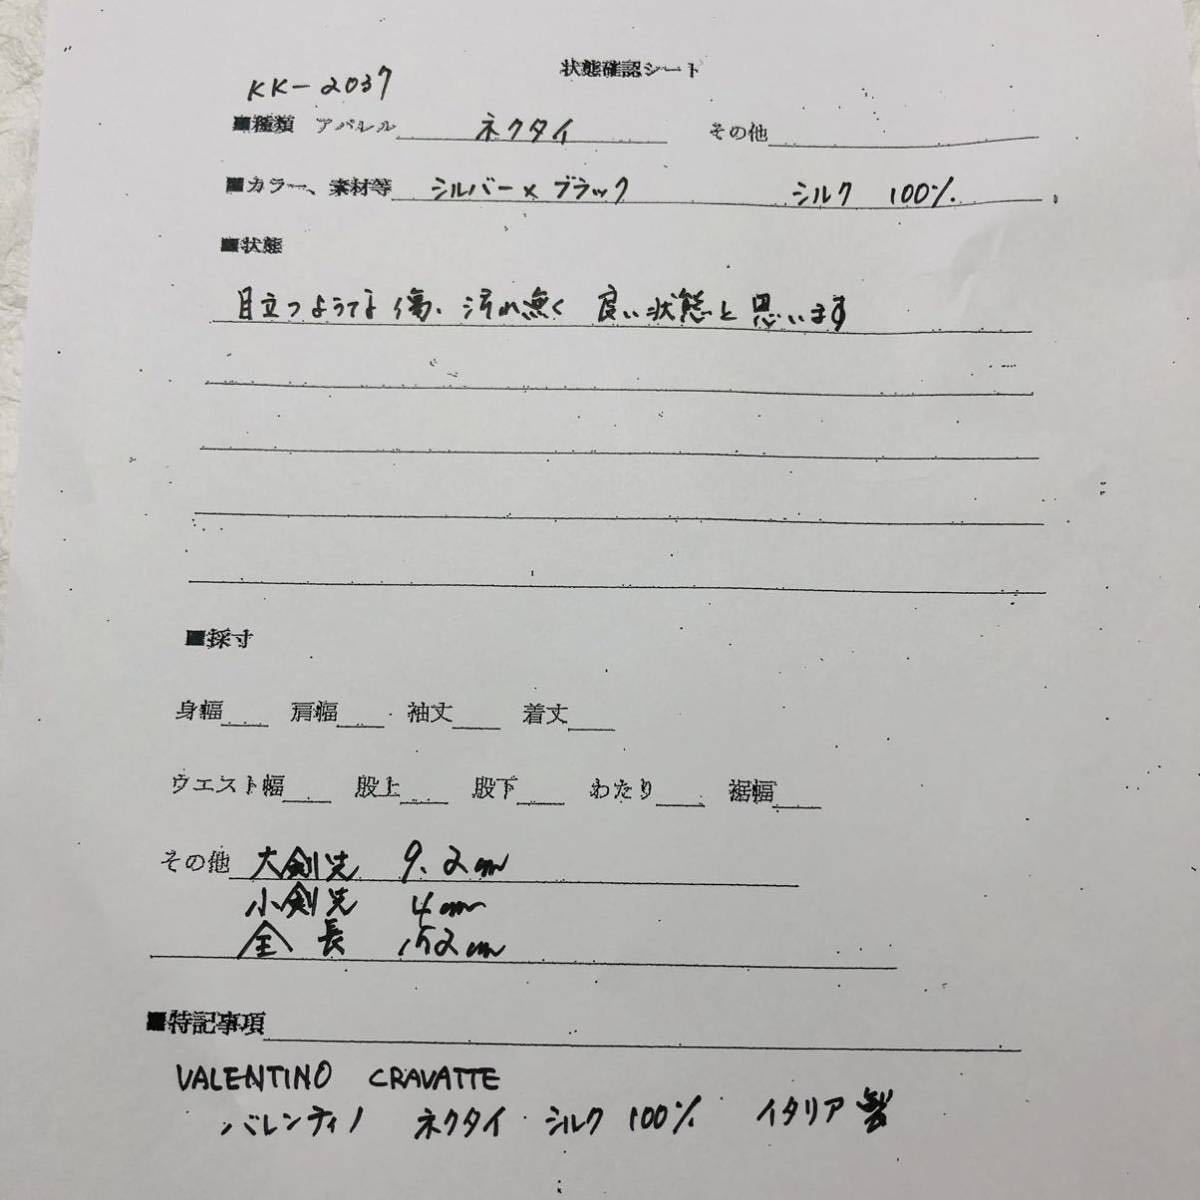 状態確認シート
KK-2037
■種類 アパレル ネクタイ その他
■カラー、素材等 シルバー×ブラック シルク 100%
■状態
目立つような傷、汚れ無く 良い状態と思います
■採寸
身幅 肩幅 袖丈 着丈
ウエスト幅 股上 股下 わたり 裾幅
その他 大剣先 9.2cm
小剣先 4cm
全長 152cm
■特記事項
VALENTINO CRAVATTE
バレンティノ ネクタイ シルク 100% イタリア製